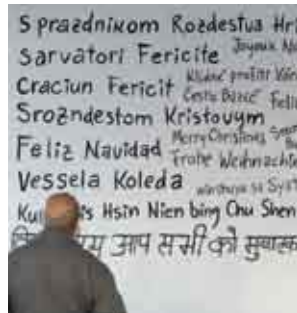 S prazdnikom Rozdestva Hri
Sarvatori Fericite Joyeux N
Craciun Fericit Klidné prožití Ván
Cestu Bozic Feli
Srozndestom Kristovym
Feliz Navidad Merry Christmas
Frohe Weihnacht
Vessela Koleda
Hsin Nien bing Chu Shen
आप सभी को